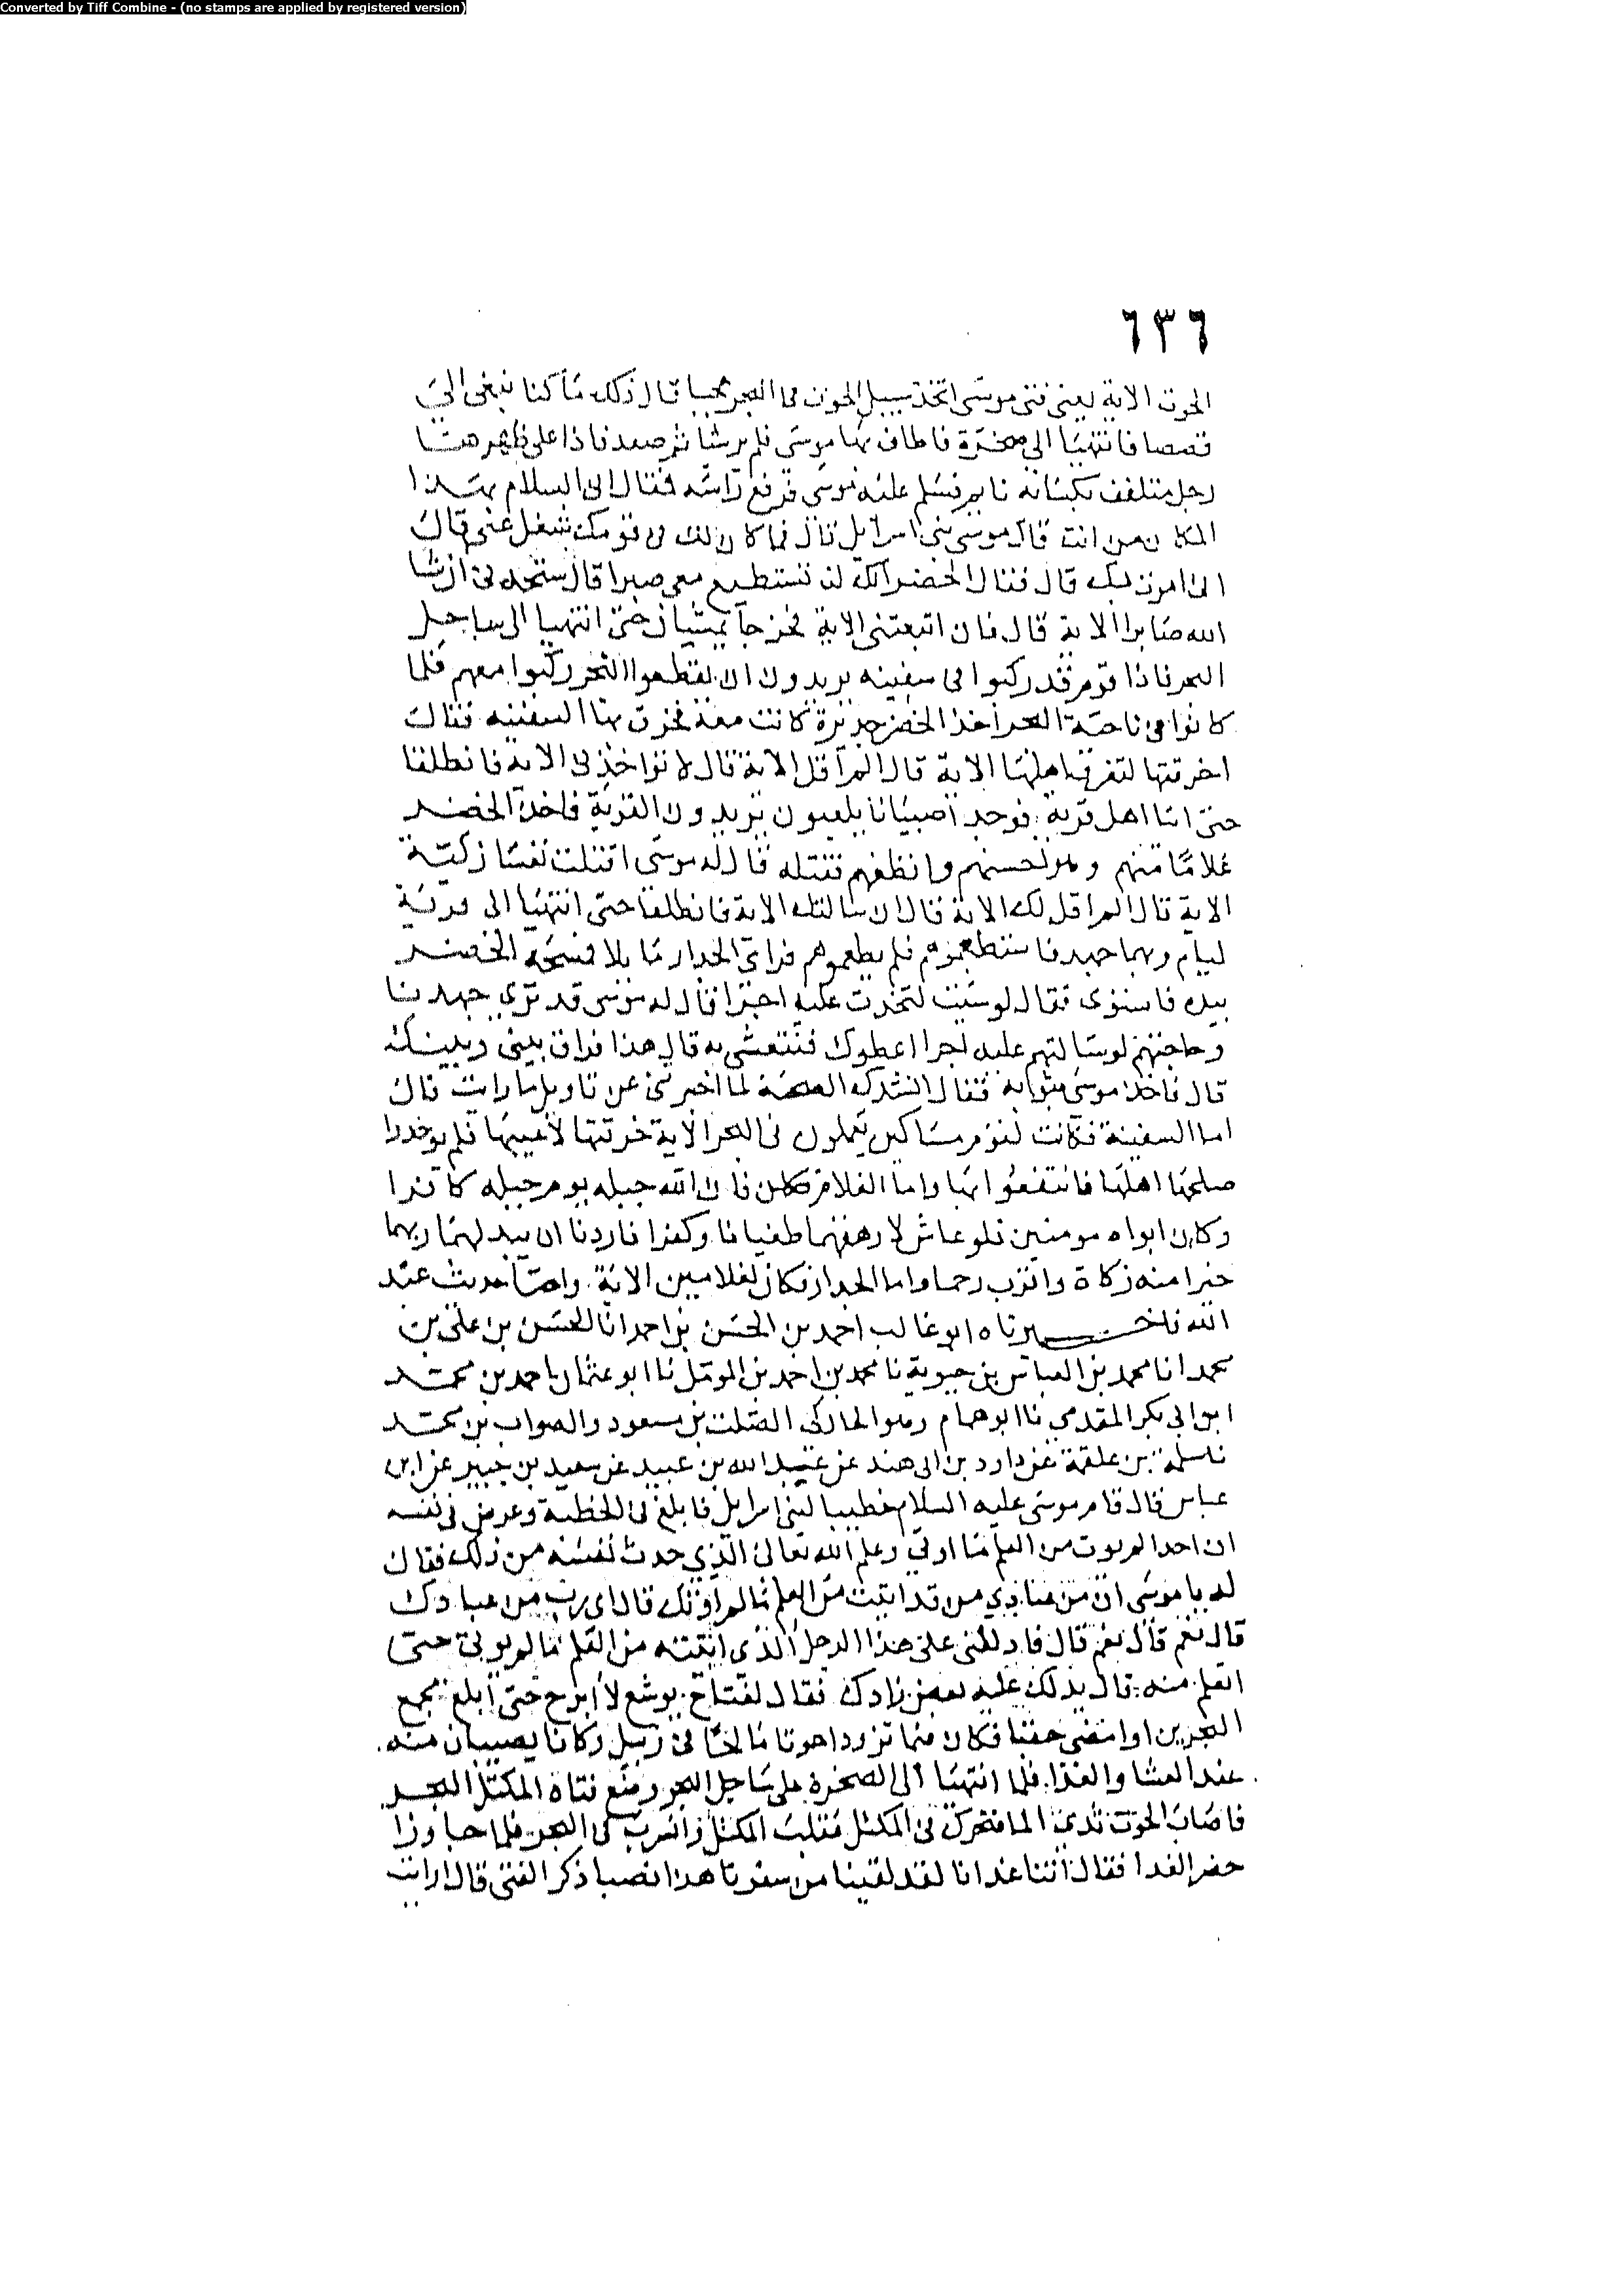 Converted by Tiff Combine - (no stamps are applied by registered version)
٦٣٦
الحوت الاية يعني فتى موسى اتخذ سبيل الحوت في البحر عجبا قال ذلك ما كنا نبغي الى
قصصا فانتهيا الى صخرة فاطاف بها موسى فلم ير شا ثم صعد فاذا على ظهرها
رجل متلفف بكسائه نايم فسلم عليه موسى فرفع راسه فقال انى السلام بهذا
المكان من انت قال موسى بني اسرايل قال فما كان لك في قومك شغل عني قال
اني امرت بك قال فقال الخضر انك لن تستطيع معي صبرا قال ستجدني ان شا
الله صابرا الاية قال فان اتبعتني الاية فخرجا يمشيان حتى انتهيا الى ساحل
البحر فاذا قوم قد ركبوا في سفينه يريدون ان يقطعوا البحر ركبوا معهم فلما
كانوا في ناحية البحر اخذ الخضر حديدة كانت معه فخرق بها السفينه فقال
اخرقتها لتغرق اهلها الاية قال الم اقل الاية قال لا تواخذني الاية فانطلقا
حتى اتيا اهل قرية فوجدا صبيانا يلعبون يريدون القرية فاخذ الخضر
غلاما منهم وهو احسنهم وانظفهم فقتله قال له موسى اقتلت نفسا زكية
الاية قال الم اقل لك الاية قال ان سالتك الاية فانطلقا حتى انتهيا الى قرية
ليام وبهما جهد فاستطعموهم فلم يطعموهم فراى الجدار مايلا فمسحه الخضر
بيده فاستوى فقال لو شيت لتخذت عليه اجرا قال له موسى قد ترى جهدنا
وحاجتنا لو سالتهم عليه اجرا اعطوك فنتعشى به قال هذا فراق بيني وبينك
قال فاخذ موسى بثوابه فقال انشدك الصحبة لما اخبرتني عن تاويل ما رايت قال
اما السفينة فكانت لقوم مساكين يعملون في البحر الاية خرقتها لاعيبها فلم يوخذوا
صلحها اهلها فانتفعوا بها واما الغلام فان الله جبله يوم جبله كافرا
وكان ابواه مومنين فلو عاش لارهقهما طغيانا وكفرا فاردنا ان يبدلهما ربهما
خيرا منه زكاة واقرب رحما واما الجدار فكان لغلامين الاية واما حديث عبد
الله فاخبرناه ابو غالب احمد بن الحسن بن احمد انا الحسن بن علي بن
محمد انا محمد بن العباس بن حيوية نا محمد بن احمد بن المومل نا ابو عثمان احمد بن محمد
ابن ابي بكر المقدمي نا ابو همام وهو الخاركي الصلت بن مسعود والصواب بن محمد
نا سلمة بن علقمة عن داود بن ابي هند عن عبد الله بن عبيد عن سعيد بن جبير عن ابن
عباس قال قام موسى عليه السلام خطيبا لبني اسرايل فابلغ في الخطبة وعرض في نفسه
ان احدا لم يوت من العلم ما اوتي وعلم الله تعالى الذي حدث نفسه من ذلك فقال
له يا موسى ان من عبادي من قد اتيت من العلم ما لم اوتك قال اى رب من عبادك
قال نعم قال نعم قال فادللني على هذا الرجل الذي اتيته من العلم ما لم يوتني حتى
اتعلم منه قال يدلك عليه بعض زادك فقال لفتاه يوشع لا ابرح حتى ابلغ مجمع
البحرين او امضي حقبا فكان فيما تزودا حوتا مالحا في زبيل وكانا يصيبان منه
عند العشا والغدا فلما انتهيا الى الصخرة على ساحل البحر وضع فتاه المكتل البحر
فاصاب الحوت ندى الما فتحرك في المكتل فقلب المكتل وانسرب في البحر فلما جاوزا
حضر الغدا فقال اتنا غدانا لقد لقينا من سفرنا هذا نصبا ذكر الفتى قال ارايت